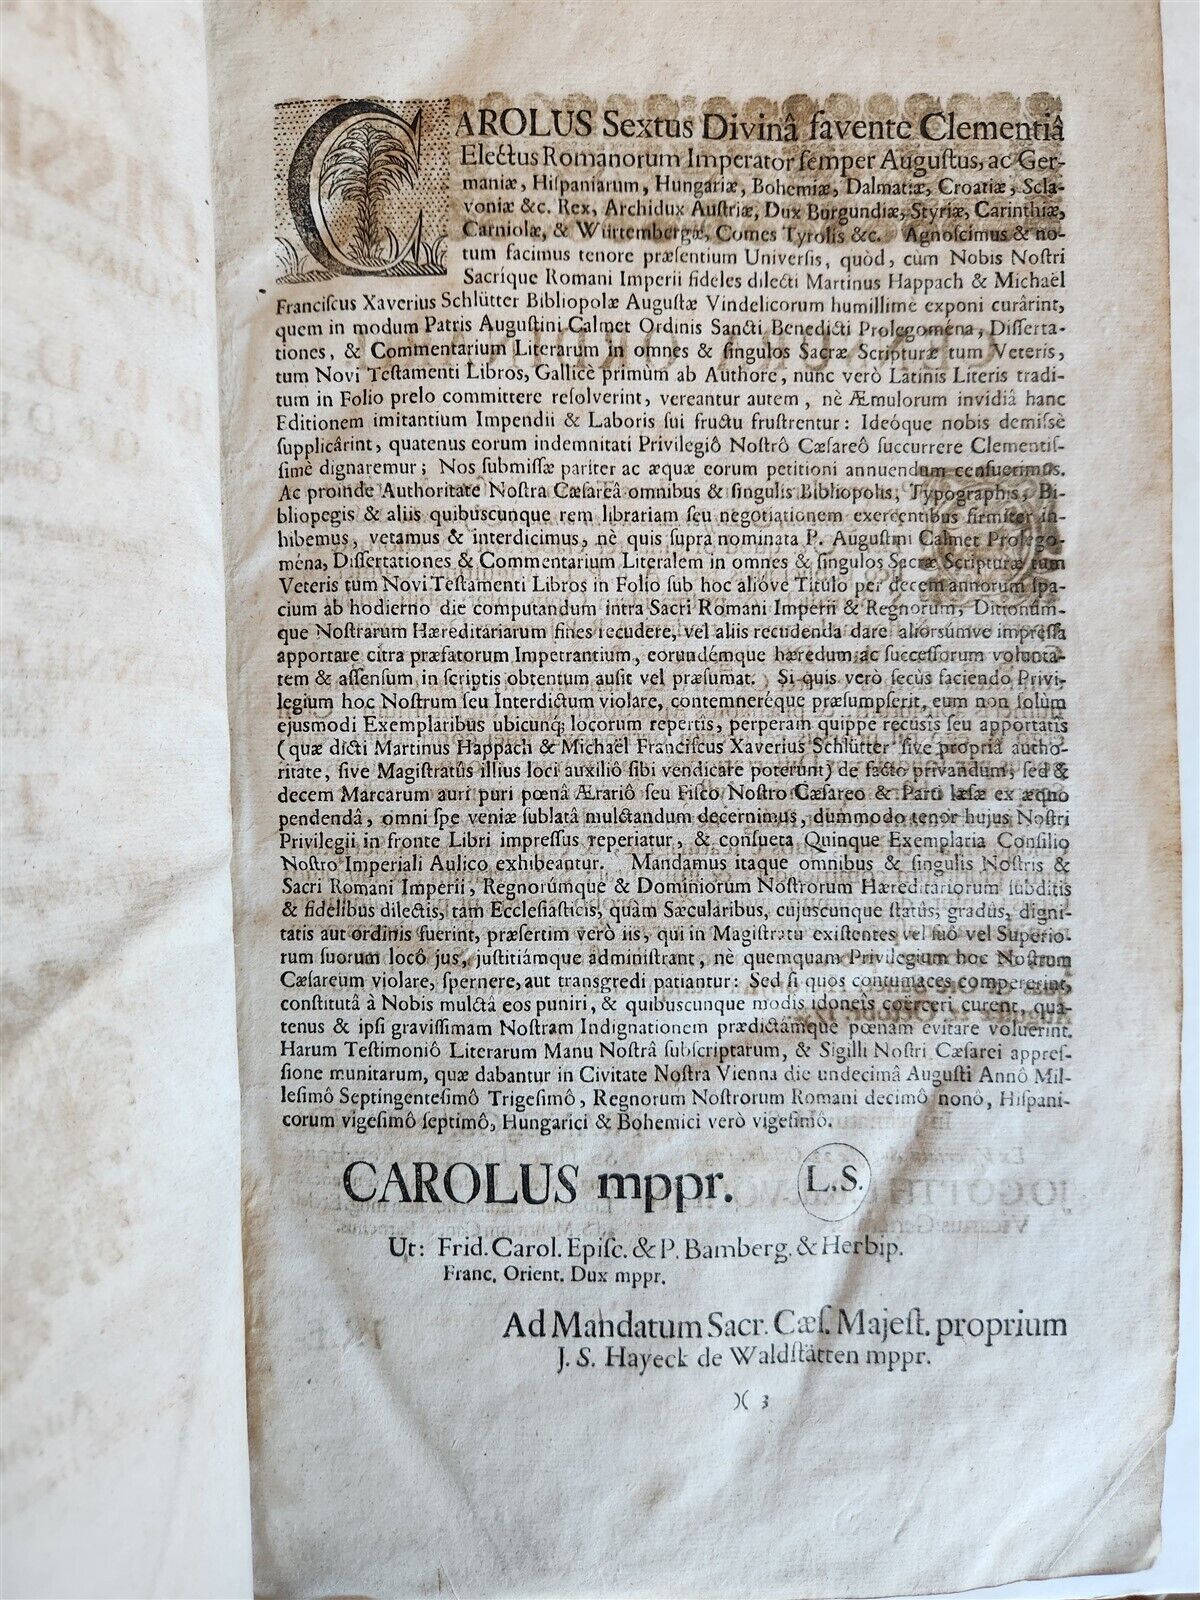 CAROLUS Sextus Divinâ favente Clementiâ
Electus Romanorum Imperator semper Augustus, ac Ger-
maniæ, Hispaniarum, Hungariæ, Bohemiæ, Dalmatiæ, Croatiæ, Scla-
voniæ &c. Rex, Archidux Austriæ, Dux Burgundiæ, Styriæ, Carinthiæ,
Carniolæ, & Würtembergæ, Comes Tyrolis &c. Agnoscimus & no-
tum facimus tenore præsentium Universis, quòd, cùm Nobis Nostri
Sacrique Romani Imperii fideles dilecti Martinus Happach & Michaël
Franciscus Xaverius Schlütter Bibliopolæ Augustæ Vindelicorum humillimè exponi curârint,
quem in modum Patris Augustini Calmet Ordinis Sancti Benedicti Prolegomena, Disserta-
tiones, & Commentarium Literarum in omnes & singulos Sacræ Scripturæ tum Veteris,
tum Novi Testamenti Libros, Gallicè primùm ab Authore, nunc verò Latinis Literis tradi-
tum in Folio prelo committere resolverint, vereantur autem, nè Æmulorum invidiâ hanc
Editionem imitantium Impendii & Laboris sui fructu frustrentur: Ideóque nobis demissè
supplicârint, quatenus eorum indemnitati Privilegiô Nostrô Cæsareô succurrere Clementis-
simè dignaremur; Nos submissæ pariter ac æquæ eorum petitioni annuendum censuerimus.
Ac proinde Authoritate Nostra Cæsareâ omnibus & singulis Bibliopolis, Typographis, Bi-
bliopegis & aliis quibuscunque rem librariam seu negotiationem exercentibus firmiter in-
hibemus, vetamus & interdicimus, nè quis supra nominata P. Augustini Calmet Prolego-
mena, Dissertationes & Commentarium Literalem in omnes & singulos Sacræ Scripturæ tum
Veteris tum Novi Testamenti Libros in Folio sub hoc alióve Titulo per decem annorum spa-
cium ab hodierno die computandum intra Sacri Romani Imperii & Regnorum, Ditionum-
que Nostrarum Hæreditariarum fines recudere, vel aliis recudenda dare aliorsúmve impressa
apportare citra præfatorum Impetrantium, eorundémque hæredum ac successorum volunta-
tem & assensum in scriptis obtentum ausit vel præsumat. Si quis verò secus faciendo Privi-
legium hoc Nostrum seu Interdictum violare, contemneréque præsumpserit, eum non solùm
ejusmodi Exemplaribus ubicunq; locorum repertis, perperam quippe recusis seu apportatis
(quæ dicti Martinus Happach & Michaël Franciscus Xaverius Schlütter sive propriâ autho-
ritate, sive Magistratûs illius loci auxiliô sibi vendicare poterunt) de facto privandum, sed &
decem Marcarum auri puri pœnâ Ærariô seu Fisco Nostro Cæsareo & Parti læsæ ex æquo
pendendâ, omni spe veniæ sublatâ mulctandum decernimus, dummodo tenor hujus Nostri
Privilegii in fronte Libri impressus reperiatur, & consueta Quinque Exemplaria Consilio
Nostro Imperiali Aulico exhibeantur. Mandamus itaque omnibus & singulis Nostris &
Sacri Romani Imperii, Regnorúmque & Dominiorum Nostrorum Hæreditariorum subditis
& fidelibus dilectis, tam Ecclesiasticis, quàm Sæcularibus, cujuscunque statûs, gradûs, digni-
tatis aut ordinis fuerint, præsertim verò iis, qui in Magistratu existentes vel suô vel Superio-
rum suorum locô jus, justitiámque administrant, nè quemquam Privilegium hoc Nostrum
Cæsareum violare, spernere, aut transgredi patiantur: Sed si quos contumaces compererint,
constitutâ à Nobis mulctâ eos puniri, & quibuscunque modis idoneîs coërceri curent, qua-
tenus & ipsi gravissimam Nostram Indignationem prædictámque pœnam evitare voluerint.
Harum Testimoniô Literarum Manu Nostrâ subscriptarum, & Sigilli Nostri Cæsarei appres-
sione munitarum, quæ dabantur in Civitate Nostra Vienna die undecimâ Augusti Annô Mil-
lesimô Septingentesimô Trigesimô, Regnorum Nostrorum Romani decimô nonô, Hispani-
corum vigesimô septimô, Hungarici & Bohemici verò vigesimô.
CAROLUS mppr. L.S.
Ut: Frid. Carol. Episc. & P. Bamberg. & Herbip.
Franc. Orient. Dux mppr.
Ad Mandatum Sacr. Cæs. Majest. proprium
J. S. Hayeck de Waldstätten mppr.
)( 3